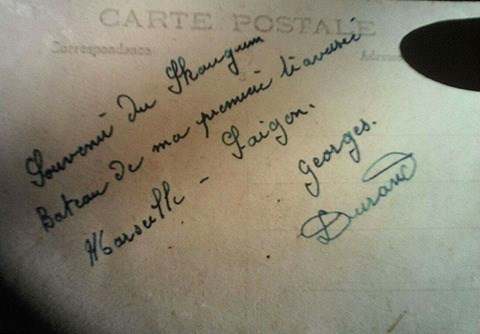 CARTE POSTALE
Correspondance
Adresse
Souvenir du Skaugum
Bateau de ma première traversée
Marseille - Saigon.
Georges.
Durand